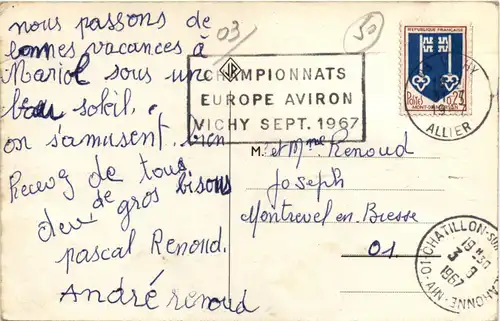 nous passons de
bonnes vacances à
Mariol sous un
beau soleil.
on s'amusent bien
Recevez de tous
deux de gros bisous
pascal Renoud.
André renoud
03/
50
CHAMPIONNATS
EUROPE AVIRON
VICHY SEPT. 1967
REPUBLIQUE FRANÇAISE
Postes 0.25
MONT-DE-MARSAN
ALLIER
M. et Mme Renoud
Joseph
Montrevel en Bresse
01
01 CHATILLON-SUR-CHALARONNE-AIN
19 H 30
3 - 9
1967